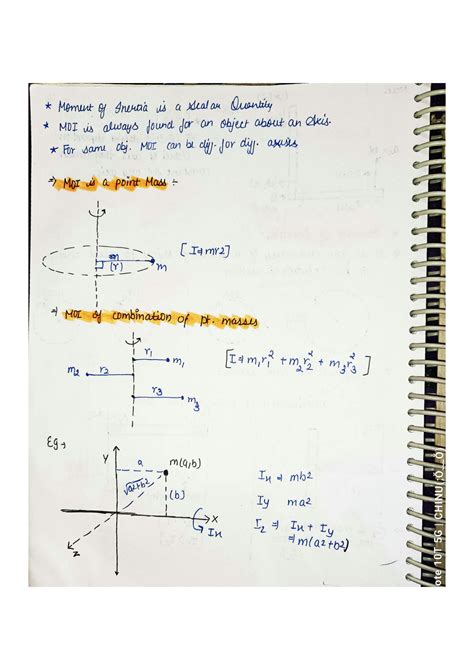 * Moment of Inertia is a Scalar Quantity
* MOI is always found for an object about an Axis.
* For same obj. MOI can be diff. for diff. axises
⇒ MOI is a point Mass :-
m
(r)
m
[I⇒mr2]
⇒ MOI of combination of pt. masses
r1 m1
m2 r2
r3 m3
[I⇒ m1r1² + m2r2² + m3r3²]
Eg →
Y
a
m(a,b)
√a²+b²
(b)
X
Ix
Z
Ix ⇒ mb²
Iy ma²
Iz ⇒ Ix + Iy
⇒ m(a²+b²)
ote 10T 5G | CHINU ;O_O;